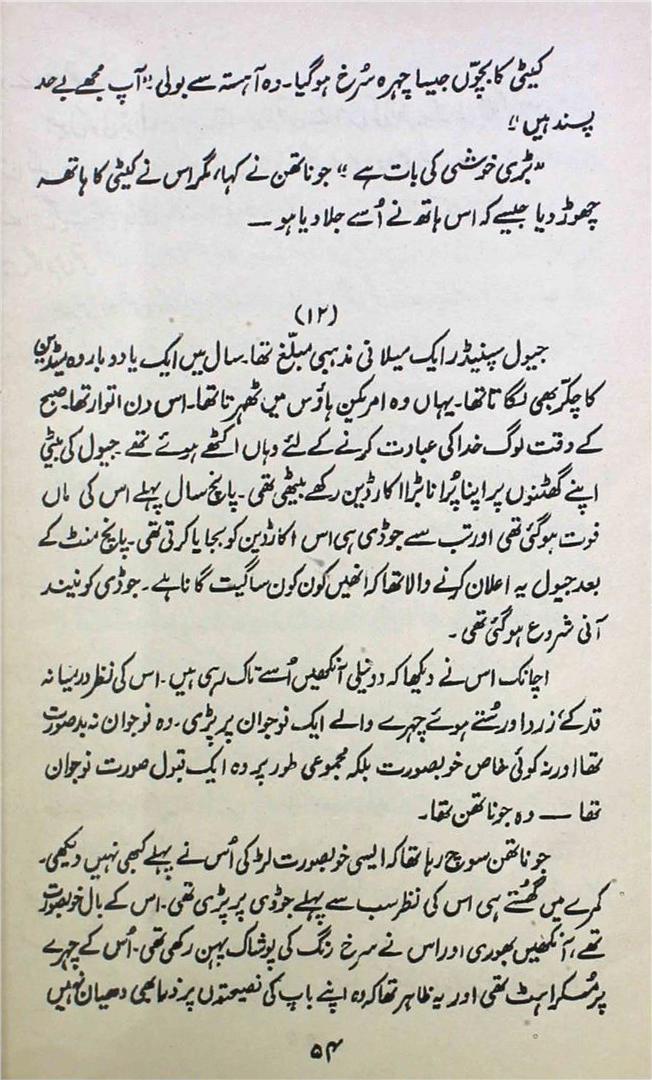 کیٹی کا بچّوں جیسا چہرہ سُرخ ہو گیا۔ وہ آہستہ سے بولی "آپ مجھے بے حد
پسند ہیں"
"بڑی خوشی کی بات ہے" جوناتھن نے کہا، مگر اس نے کیٹی کا ہاتھ
چھوڑ دیا جیسے کہ اس ہاتھ نے اُسے جلا دیا ہو —
(۱۲)
جیول سپنیڈر ایک میلانی مذہبی مبلّغ تھا۔ سال میں ایک یا دو بار وہ
کا چکّر بھی لگاتا تھا۔ یہاں وہ امریکن ہاؤس میں ٹھہرتا تھا۔ اس دن اتوار تھا۔ صبح
کے وقت لوگ خدا کی عبادت کرنے کے لئے وہاں اکٹھے ہوئے تھے۔ جیول کی بیٹی
اپنے گھٹنوں پر اپنا پُرانا بڑا اکارڈین رکھے بیٹھی تھی۔ پانچ سال پہلے اس کی ماں
فوت ہو گئی تھی اور تب سے جوڈی ہی اس اکارڈین کو بجایا کرتی تھی۔ پانچ منٹ کے
بعد جیول یہ اعلان کرنے والا تھا کہ انھیں کون کون سا گیت گانا ہے۔ جوڈی کو نیند
آنی شروع ہو گئی تھی۔
اچانک اس نے دیکھا کہ دو نیلی آنکھیں اُسے تاک رہی ہیں۔ اس کی نظر درمیانہ
قد کے، زرد اور ستے ہوئے چہرے والے ایک نوجوان پر پڑی۔ وہ نوجوان نہ بدصورت
تھا اور نہ کوئی خاص خوبصورت بلکہ مجموعی طور پر وہ ایک قبول صورت نوجوان
تھا — وہ جوناتھن تھا۔
جوناتھن سوچ رہا تھا کہ ایسی خوبصورت لڑکی اُس نے پہلے کبھی نہیں دیکھی۔
کمرے میں گھُستے ہی اس کی نظر سب سے پہلے جوڈی پر پڑی تھی۔ اس کے بال خوبصورت
تھے، آنکھیں بھوری اور اس نے سرخ رنگ کی پوشاک پہن رکھی تھی۔ اُس کے چہرے
پر مُسکراہٹ تھی اور یہ ظاہر تھا کہ وہ اپنے باپ کی نصیحتوں پر ذرا بھی دھیان نہیں
۵۴